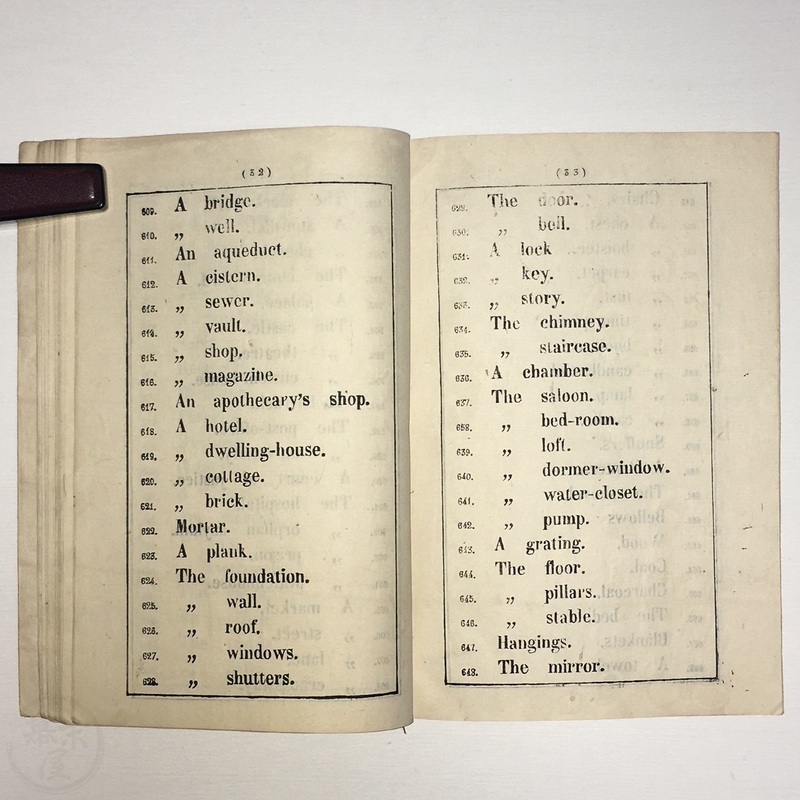 (32)
609. A bridge.
610. „ well.
611. An aqueduct.
612. A cistern.
613. „ sewer.
614. „ vault.
615. „ shop.
616. „ magazine.
617. An apothecary's shop.
618. A hotel.
619. „ dwelling-house.
620. „ cottage.
621. „ brick.
622. Mortar.
623. A plank.
624. The foundation.
625. „ wall.
626. „ roof.
627. „ windows.
628. „ shutters.
(33)
629. The door.
630. „ bell.
631. A lock
632. „ key.
633. „ story.
634. The chimney.
635. „ staircase.
636. A chamber.
637. The saloon.
638. „ bed-room.
639. „ loft.
640. „ dormer-window.
641. „ water-closet.
642. „ pump.
643. A grating.
644. The floor.
645. „ pillars.
646. „ stable.
647. Hangings.
648. The mirror.